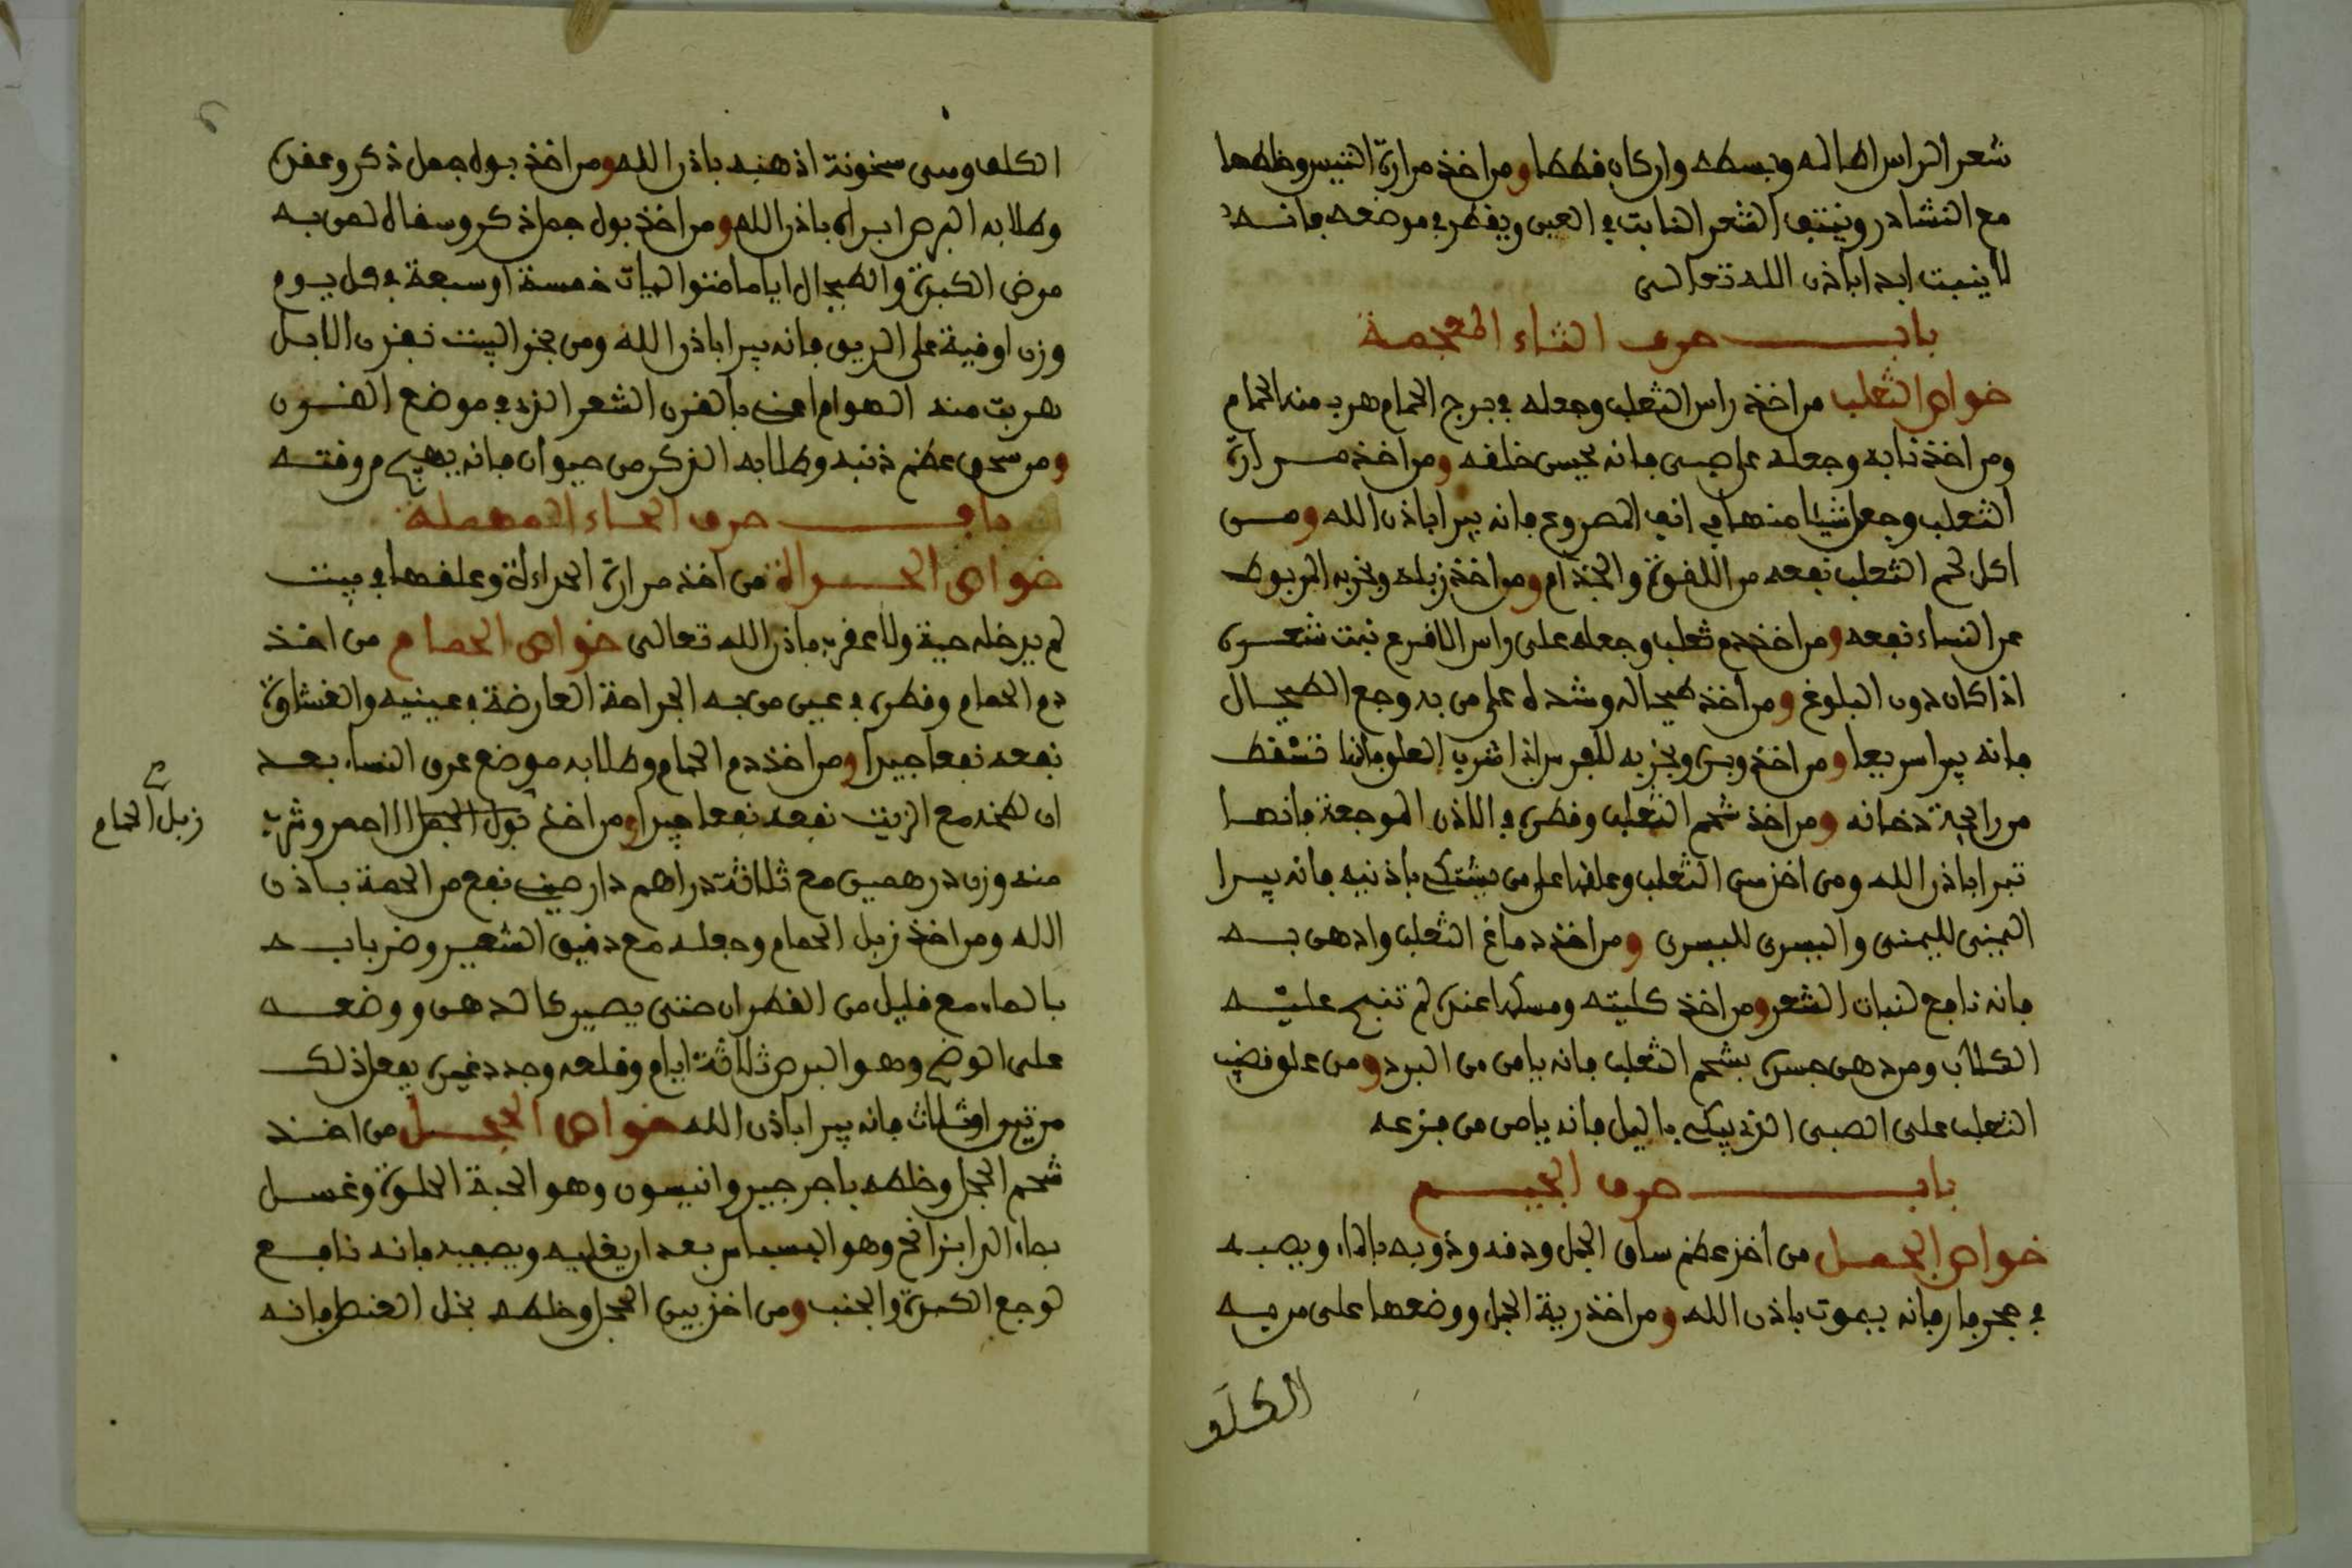 شعر الراس اطاله وبسطه وان كان فططا ومن اخذ مرارة التيس وخلطها
مع النشادر وينتف الشعر النابت في العين ويفطر في موضعه فانه
لا ينبت ابدا باذن الله تعالى
باب حرف الثاء المعجمة
خواص الثعلب من اخذ راس الثعلب وجعله في برج الحمام هرب منه الحمام
ومن اخذ نابه وجعله على صبي فانه يحسن خلفه ومن اخذ مرارة
الثعلب وجعل شيئا منها في انف المصروع فانه يبرا باذن الله ومن
اكل لحم الثعلب نفعه من اللقوة والجذام ومن اخذ زبله وبخر به المربوط
عن النساء نفعه ومن اخذ دم ثعلب وجعله على راس الاقرع نبت شعره
اذا كان دون البلوغ ومن اخذ طحاله وشده على من به وجع الطحال
فانه يبرا سريعا ومن اخذ وبره وبخر به للفرس اذا شرب العلق فانها تسقط
من رايحة دخانه ومن اخذ شحم الثعلب وفطره في الاذن الموجعة فانها
تبرا باذن الله ومن اخذ سن الثعلب وعلقها على من يشتكي باذنيه فانه يبرا
اليمنى لليمنى واليسرى لليسرى ومن اخذ دماغ الثعلب وادهن به
فانه نافع لنبات الشعر ومن اخذ كليته ومسكها عنده لم تنبح عليه
الكلاب ومن دهن جسده بشحم الثعلب فانه يامن من البرد ومن علق قضيب
الثعلب على الصبي الذي يبكي باليل فانه يامن من فزعه
باب حرف الجيم
خواص الجمل من اخذ عظم ساق الجمل ودقه وذوبه بالماء ويصبه
في جحر فار فانه يموت باذن الله ومن اخذ رية الجمل ووضعها على من به
الكلف
الكلف ومن سخونة اذهبه باذن الله ومن اخذ بول جمل ذكر وعفره
وطلا به البرص ابراه باذن الله ومن اخذ بول جمل ذكر وسقاه لمن به
مرض الكبد والطحال اياما متواليات خمسة او سبعة في كل يوم
وزن اوقية على الريق فانه يبرا باذن الله ومن بخر البيت بقرن الابل
هربت منه الهوام اعني بالقرن الشعر الذي في موضع القرون
ومن سحق عظم ذنبه وطلا به الذكر من حيوان فانه يهيج من وقته
باب حرف الحاء المهملة
خواص الحداة من اخذ مرارة الحداة وعلقها في بيت
لم يدخله حية ولا عقرب باذن الله تعالى خواص الحمام من اخذ
دم الحمام وفطره في عين من به الجراحة العارضة في عينيه والغشاوة
نفعه نفعا جيدا ومن اخذ دم الحمام وطلا به موضع عرق النساء بعد
ان طبخه مع الزيت نفعه نفعا جيدا ومن اخذ بول الجمل الاحمر وشرب
زبل الحمام
منه وزن درهمين مع ثلاثة دراهم دارصيني نفع من الحصاة باذن
الله ومن اخذ زبل الحمام وجعله مع دقيق الشعير وضربا به
بالماء مع قليل من القطران حتى يصير كالدهن ووضعه
على الوضح وهو البرص ثلاثة ايام وقلعه وجدد غيره يفعل ذلك
مرتين او ثلاث فانه يبرا باذن الله خواص الحجل من اخذ
شحم الحجل وخلطه باجرجير وانيسون وهو الحبة الحلوة وغسل
بماء الرازيانج وهو البسباس بعد ان يغليه ويصفيه فانه نافع
لوجع الكبد والجنب ومن اخذ بيض الحجل وخلطه بخل العنصل فانه